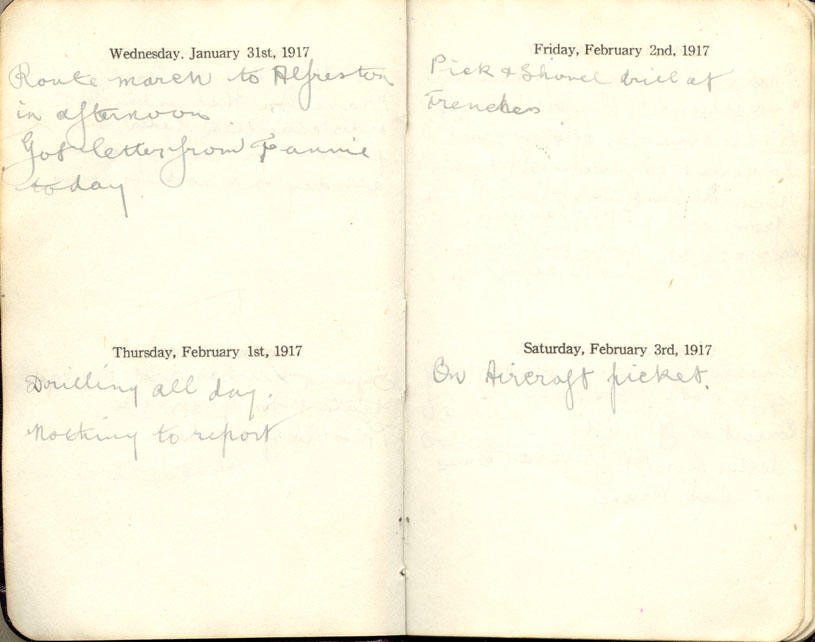 Wednesday. January 31st, 1917
Route march to Alfreston
in afternoon
Got letter from Fannie
today
Thursday, February 1st, 1917
Drilling all day.
Nothing to report
Friday, February 2nd, 1917
Pick & Shovel drill at
Trenches
Saturday, February 3rd, 1917
On Aircraft picket.